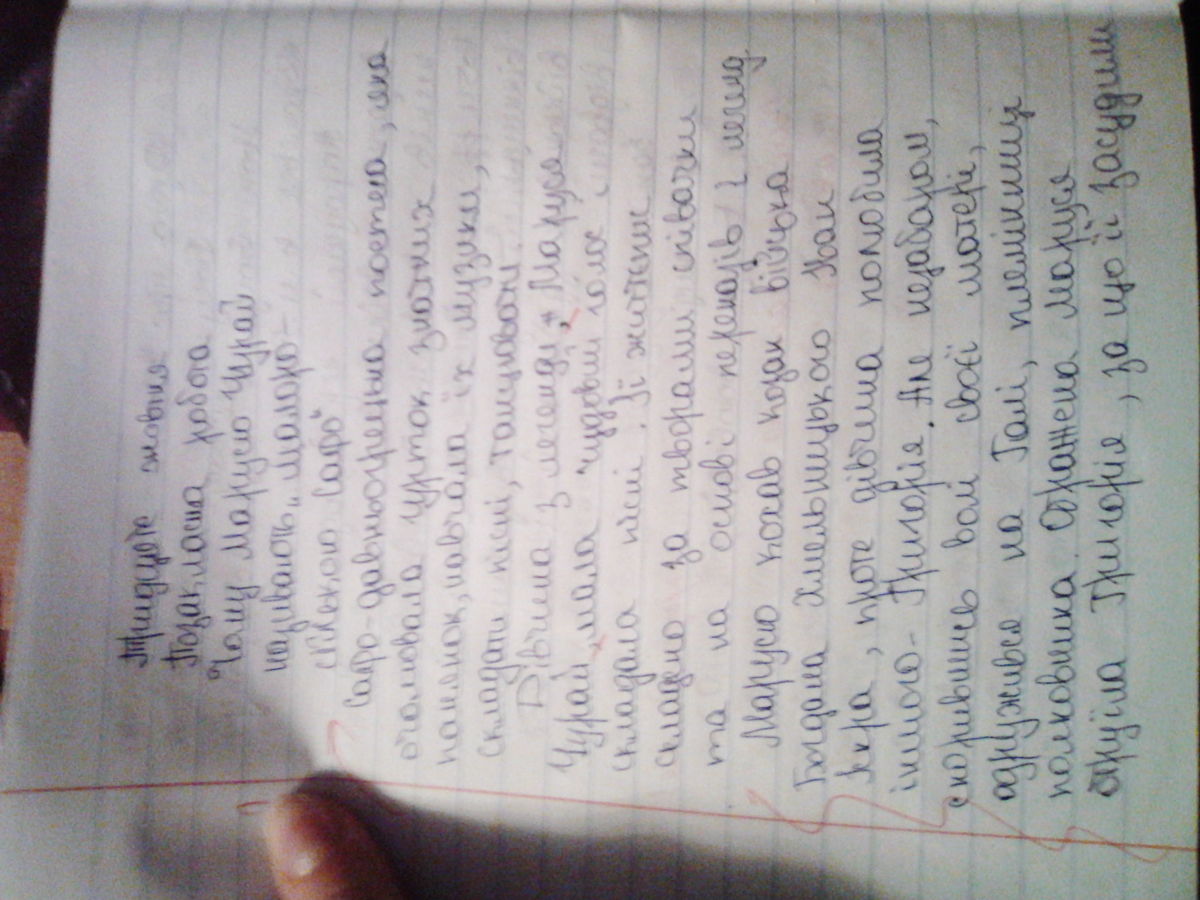 Тридцяте жовтня
Позакласна робота
"Чому Марусю Чурай
називають „малоро-
сійською Сафо"
Сафо-давньогрецька поетеса, яка
очолювала гурток знатних
панянок, навчала їх музики,
складати пісні, танцювати.
Дівчина з легенди, Маруся
Чурай, мала чудовий голос і
складала пісні. Її життєпис
складено за творами співачки
та на основі переказів і легенд
Марусю кохав козак війська
Богдана Хмельницького Іван
Іскра, проте дівчина полюбила
іншого- Григорія. Але незабаром,
скорившись волі своєї матері,
одружився на Галі, племінниці
полковника. Ображена Маруся
отруїла Григорія, за що її засудили